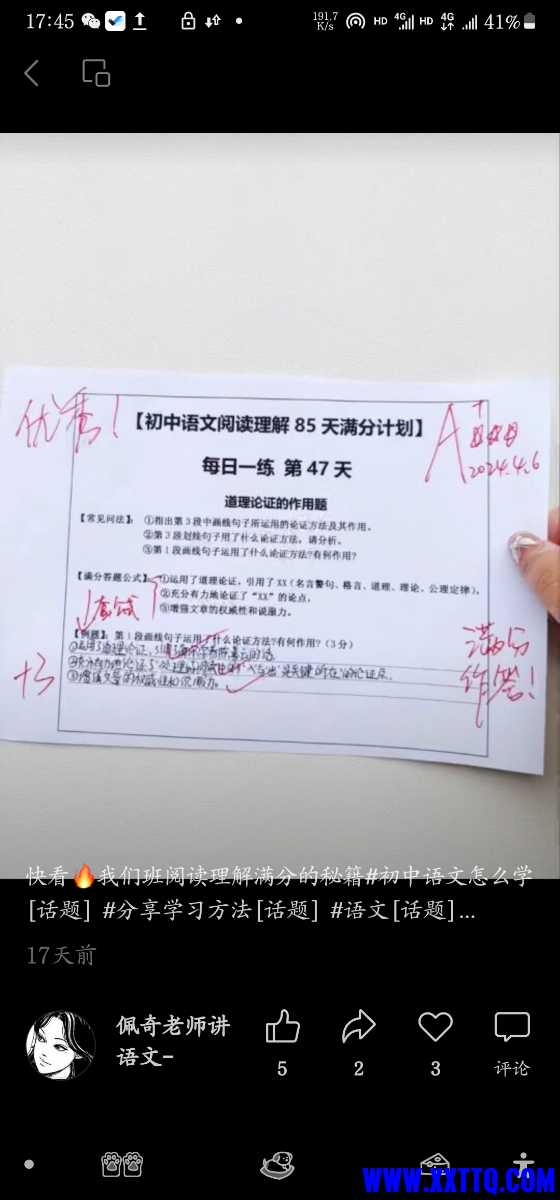 17:45
191.7 K/s HD 4G HD 4G 41%
优秀！
【初中语文阅读理解 85 天满分计划】
A+
2024.4.6
每日一练 第 47 天
道理论证的作用题
【常见问法】：①指出第 3 段中画线句子所运用的论证方法及其作用。
②第 3 段划线句子用了什么论证方法，请分析。
③第 1 段画线句子运用了什么论证方法?有何作用?
【满分答题公式】①运用了道理论证，引用了 XX（名言警句、格言、道理、理论、公理定律），
②充分有力地论证了“XX”的论点，
③增强文章的权威性和说服力。
套公式
【例题】：第 1 段画线句子运用了什么论证方法?有何作用?（3 分）
①运用了道理论证，引用了
②充分有力地论证了
③增强文章的权威性和说服力。
+3
满分作答！
快看🔥我们班阅读理解满分的秘籍#初中语文怎么学
[话题] #分享学习方法[话题] #语文[话题]...
17天前
佩奇老师讲
语文-
5 2 3 评论
WWW.XXTTQ.COM